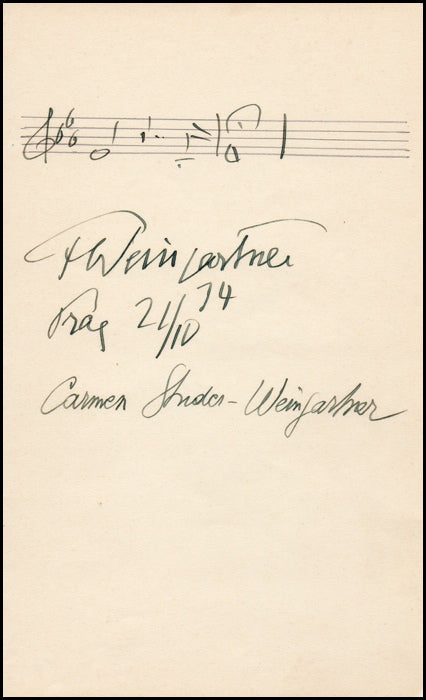 F Weingartner
Prag 21/10 34
Carmen Studer-Weingartner